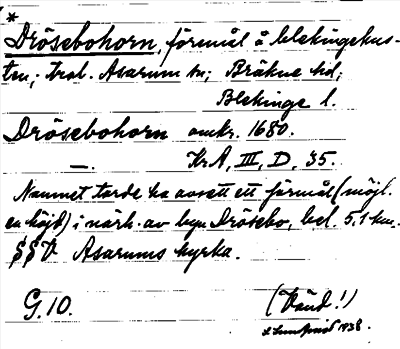 *
Drösebohorn, föremål å blekingekus-
ten; trol. Asarum sn; Bräkne hd;
Blekinge l.
Drösebohorn omkr. 1680.
—. KrA, III, D, 35.
Namnet torde ha avsett ett föremål (möjl.
en höjd) i närh. av byn Drösebo, bel. 5,1 km.
SSV Asarums kyrka.
G. 10. (Vänd!)
1938.